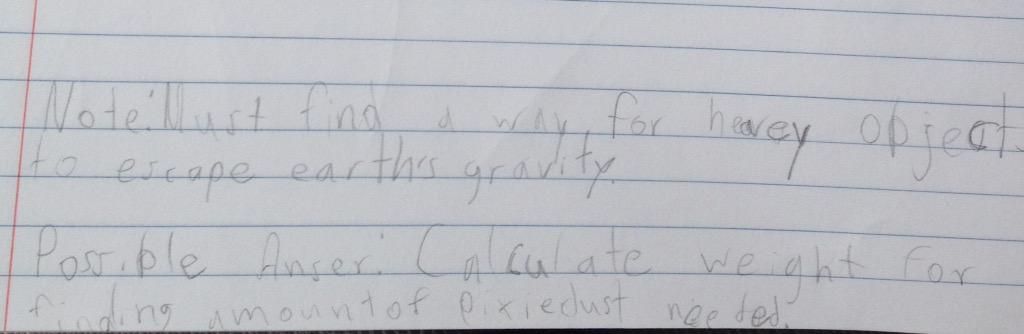 Note: Must find a way, for heavey object
to escape earth's gravity.
Possible Anser: Calculate weight for
finding amount of pixiedust needed.